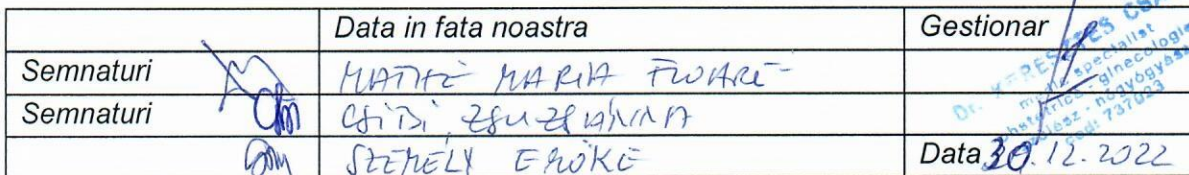 Data in fata noastra Gestionar
Semnaturi MATHÉ MARIA
Semnaturi CSIBI ZSUZSÁNNA
SZEMÉLY EMŐKE Data 30.12.2022
Dr. KERESZTES
medic specialist
obstetrica - ginecologie
nőgyógyász
cod: 737023